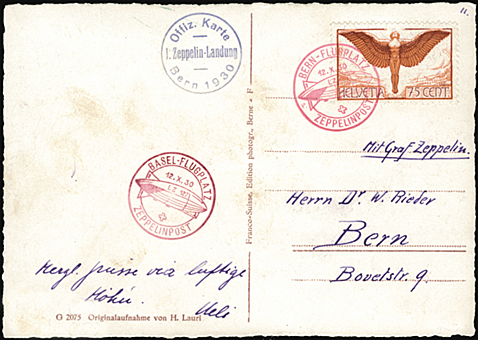 11.
Offiz. Karte
1. Zeppelin-Landung
Bern 1930
BERN-FLUGPLATZ
12.X.30
LZ 127
ZEPPELINPOST
HELVETIA 75 CENT.
Mit Graf Zeppelin.
BASEL-FLUGPLATZ
12.X.30
ZEPPELINPOST
Herrn Dr. W. Rieder
Bern
Bovetstr. 9
Herzl. Grüsse via luftige
Höhen. Ueli
G 2075 Originalaufnahme von H. Lauri
Franco-Suisse, Edition photogr., Berne • F